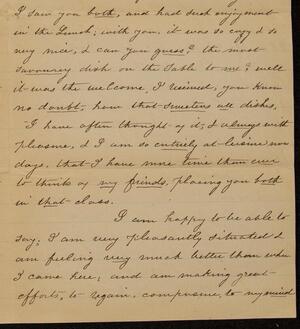 I saw you both, and had such enjoyment
in the Lunch; with you, it was so cozy & so
very nice, & can you guess? the most
savoury dish on the table to me? well
it was the welcome, I received, you know
no doubt, how that sweetens all dishes.
I have often thought of it; & always with
pleasure, & I am so entirely at leisure now
days, that I have more time than ever
to think of my friends, placing you both
in that class.
I am happy to be able to
say; I am very pleasantly situated &
am feeling very much better than when
I came here; and am making great
efforts, to regain, composure, to my mind